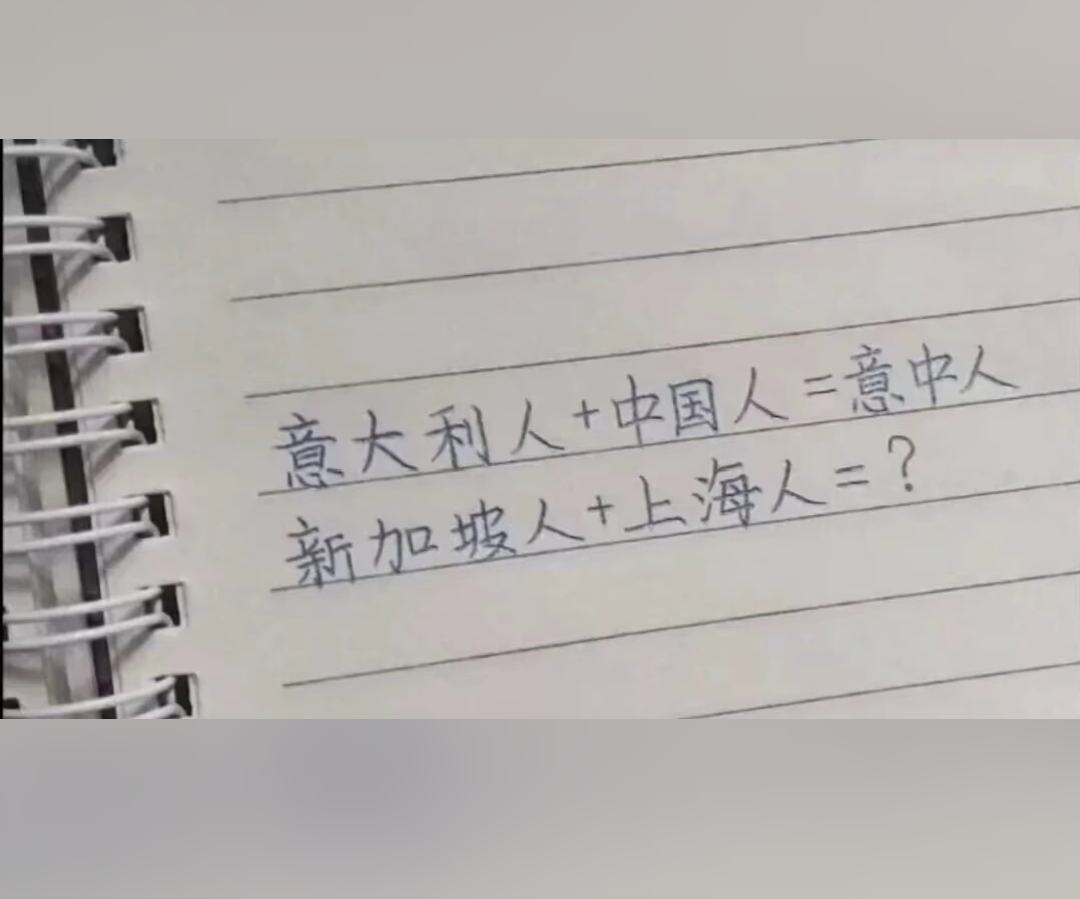 意大利人+中国人=意中人
新加坡人+上海人=?